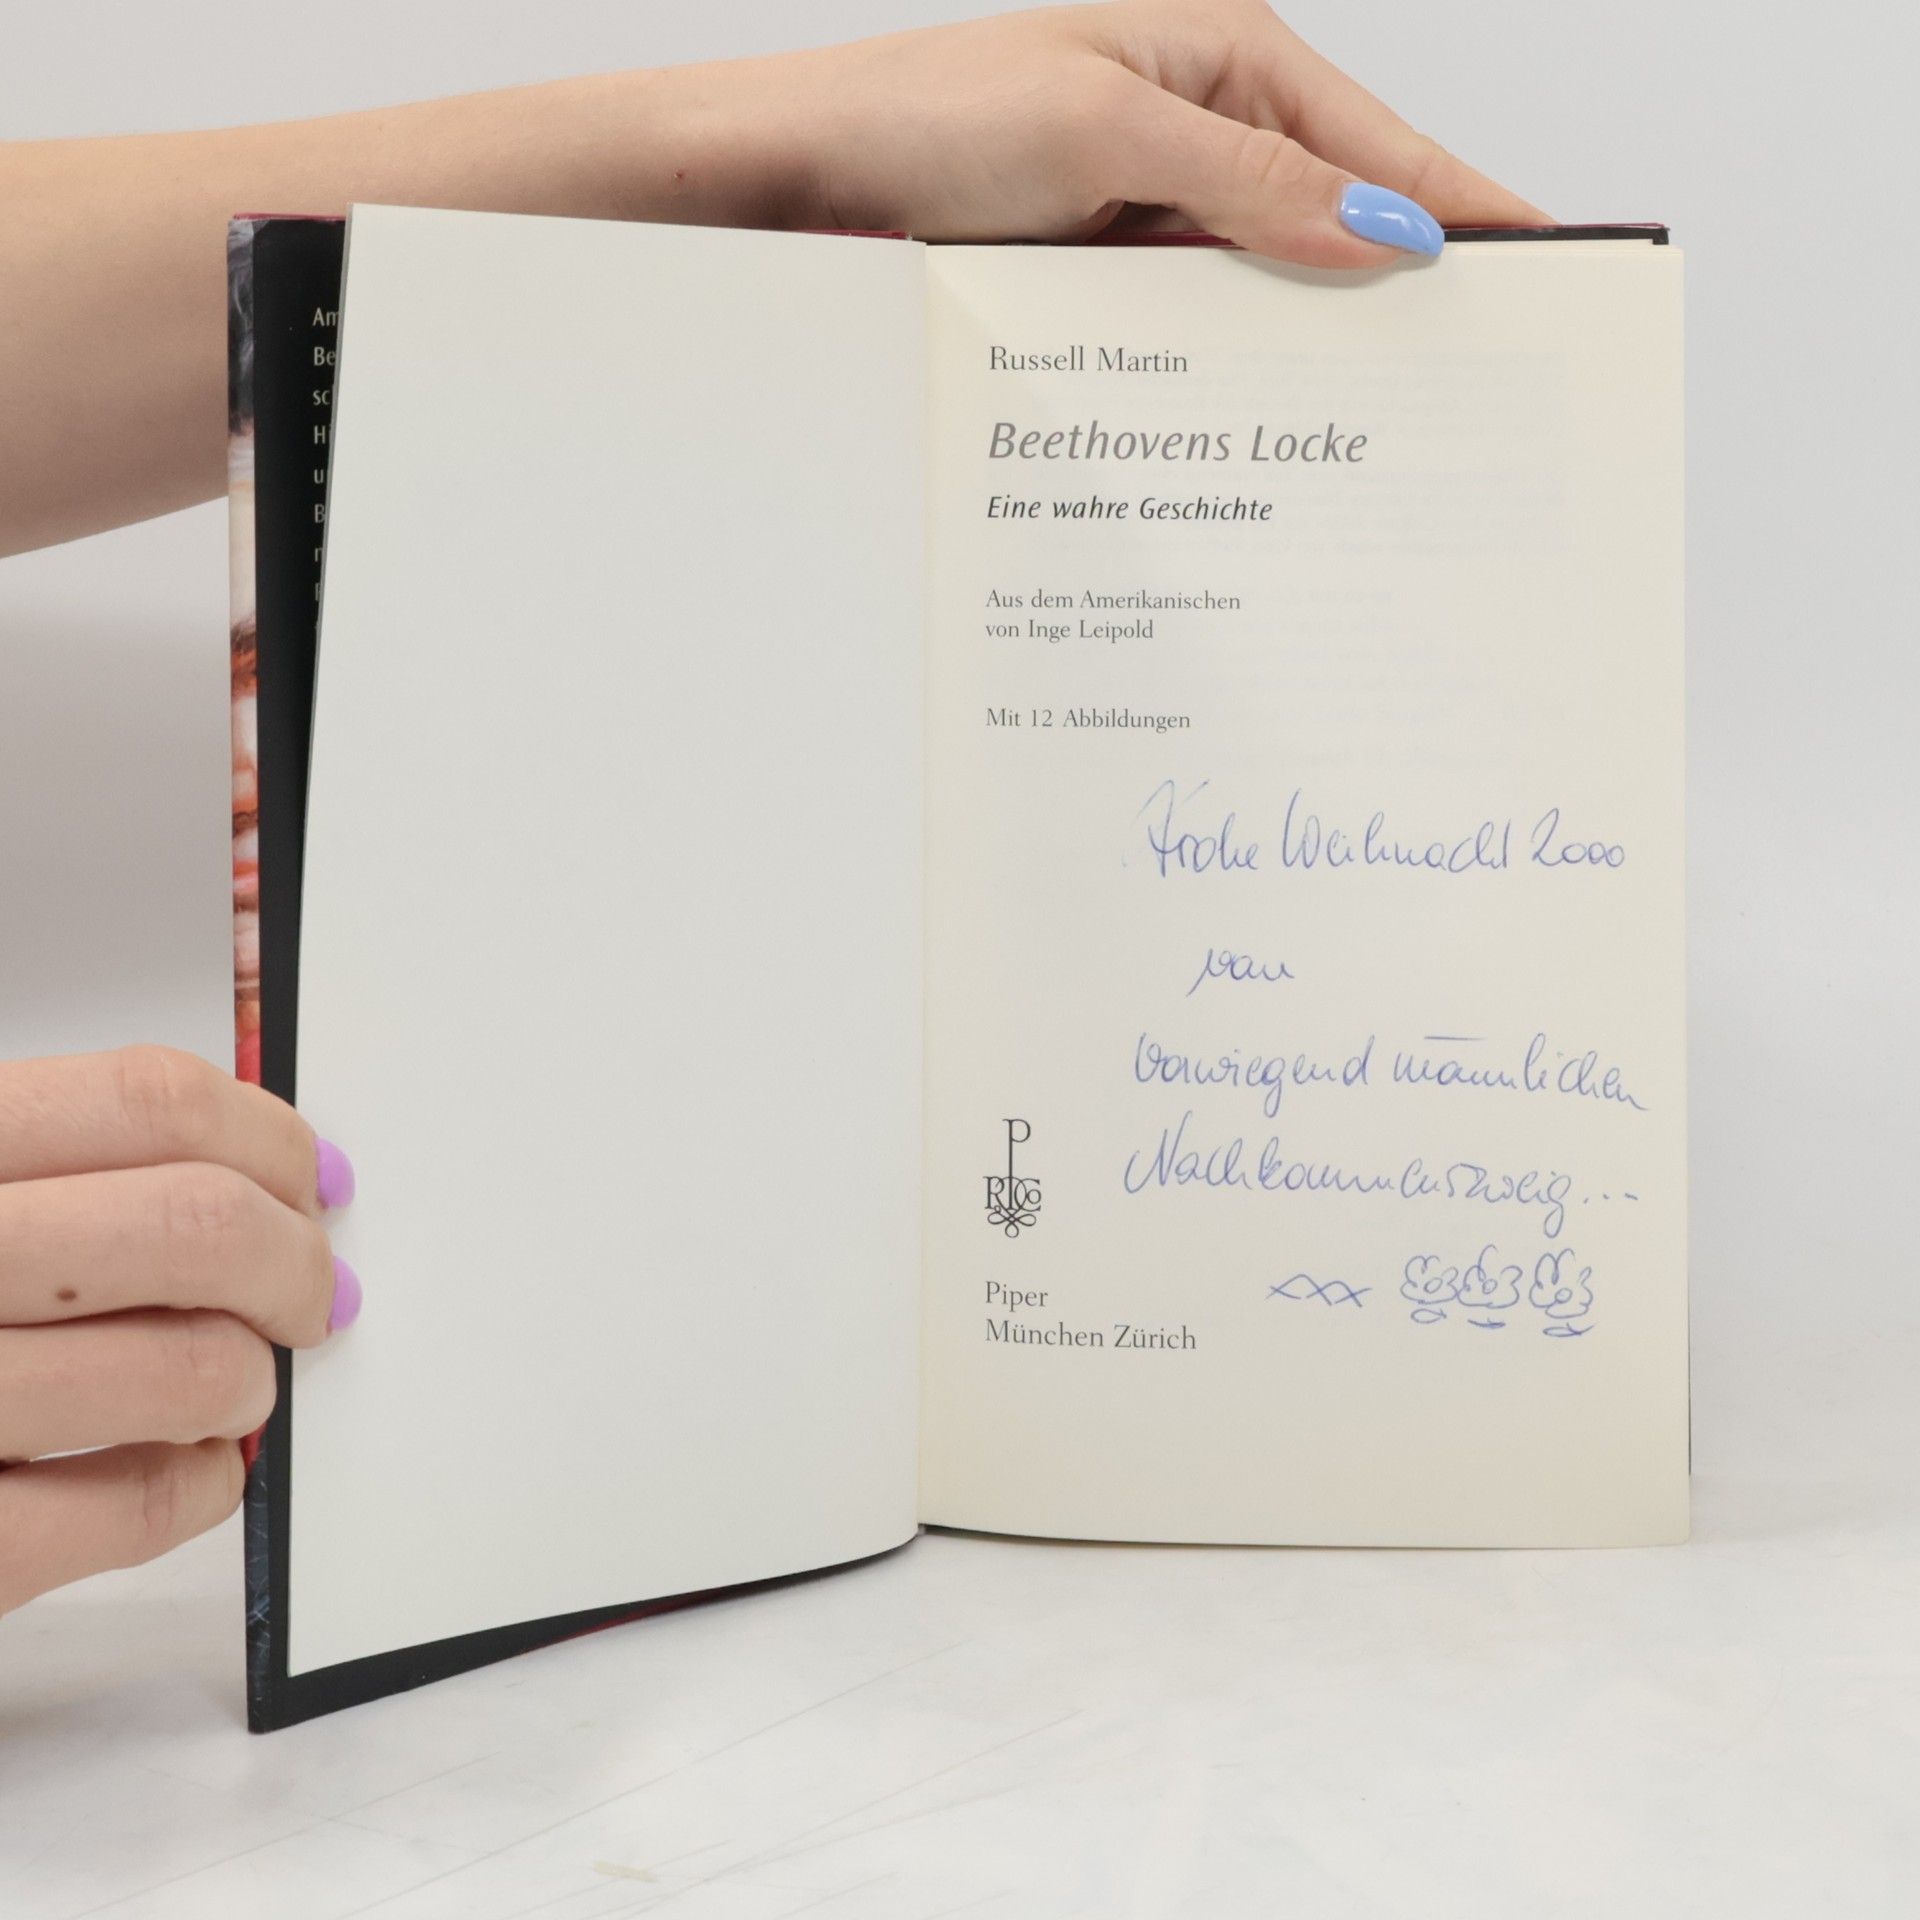 Am
Be
sc
H
u
B
Russell Martin
Beethovens Locke
Eine wahre Geschichte
Aus dem Amerikanischen
von Inge Leipold
Mit 12 Abbildungen
Frohe Weihnacht 2000
von
vorwiegend männlichen
Nachkommenszweig...
Piper
München Zürich